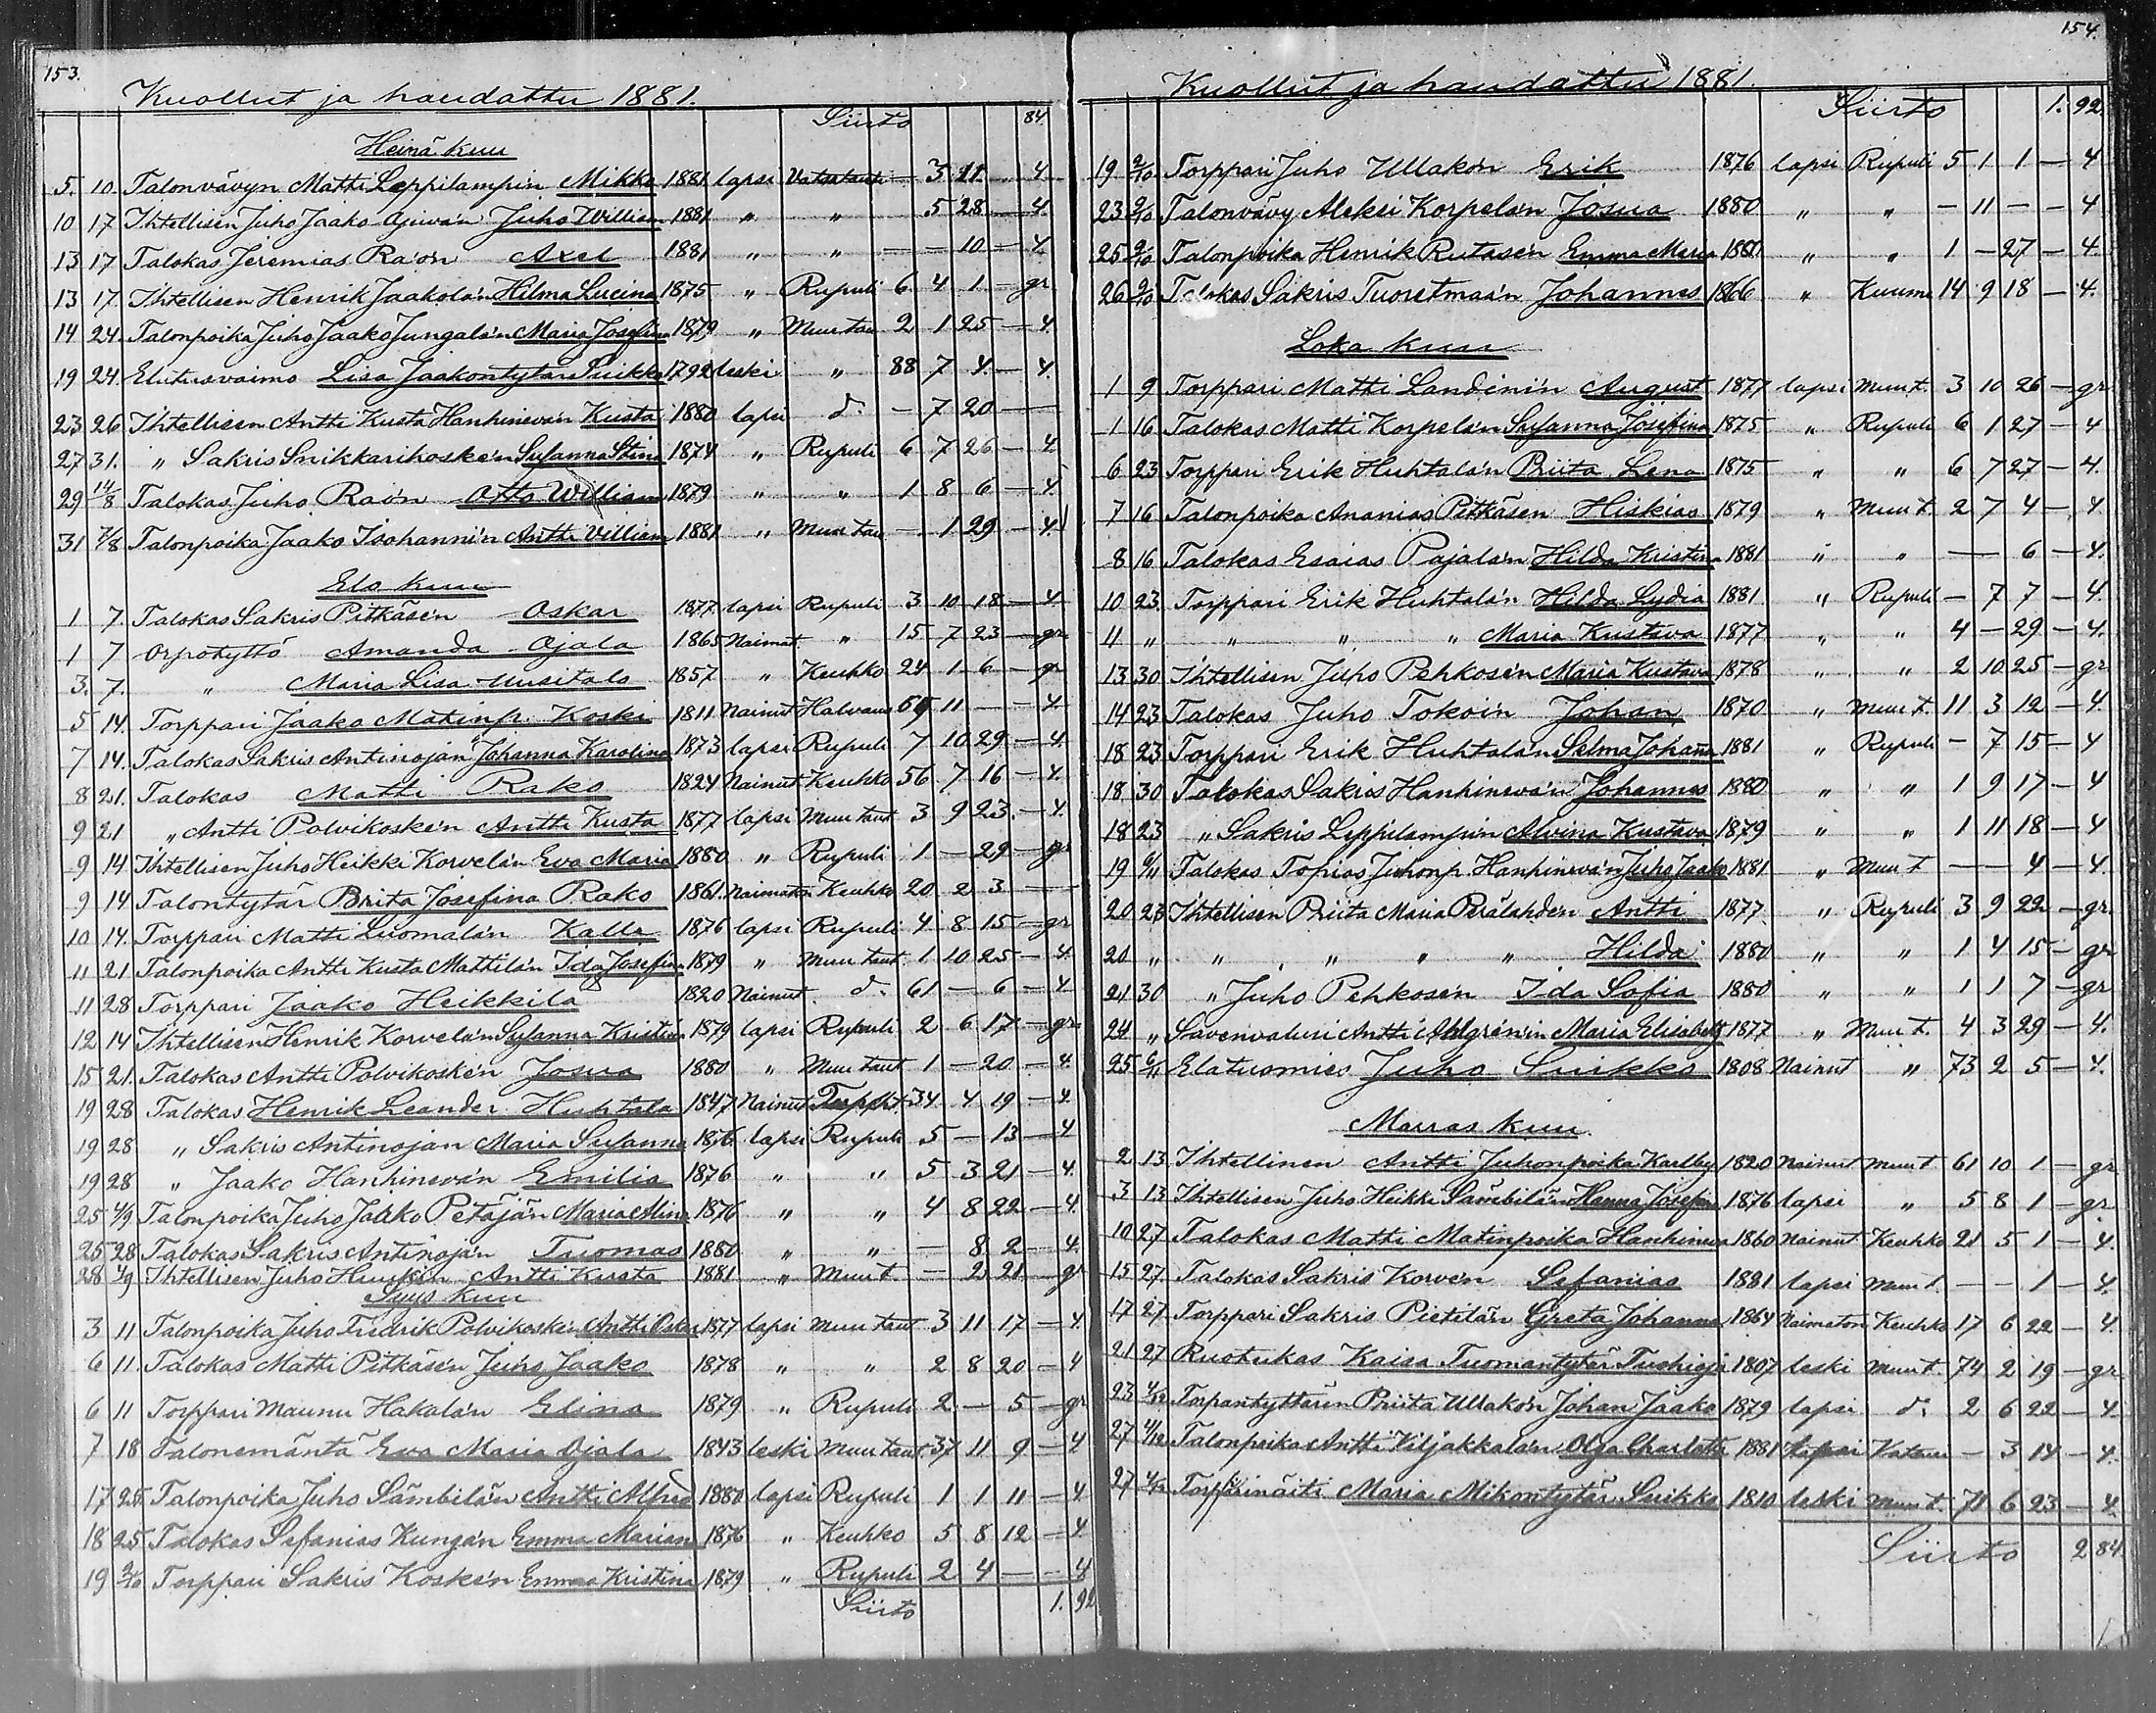 153.
Kuollut ja haudattu 1881.
Siirto 84.
Heinä kuu
5. 10. Talonvävyn Matti Leppilampin Mikko 1881 lapsi Vatsataut — 3 21 — 4
10 17 Ihtellisen Juho Jaako Ojuwan Juho William 1881 " " — 5 28 — 4.
13 17 Talokas Jeremias Raon Axel 1881 " " — — 10 — 4.
13 17. Ihtellisen Henrik Jaakolan Hilma Lucina 1875 " Rupuli 6 4 1 — gr
14 24. Talonpoika Juho Jaako Jungalan Maria Josefina 1879 " Muu tau 2 1 25 — 4.
19 24 Elatusvaimo Lisa Jaakontytär Suikko 1792 leski " 88 7 4 — 4.
23 26 Ihtellisen Antti Kusta Hanhinevan Kusta 1880 lapsi d:o — 7 20 —
27 31. " Sakris Snikkarikosken Susanna Stina 1874 " Rupuli 6 7 26 — 4
29 14/8 Talokas Juho Raon Otto William 1879 " " 1 8 6 — 4.
31 7/8 Talonpoika Jaako Isohannin Antti Villiam 1881 " Muu tau — 1 29 — 4.
Elo kuu
1 7. Talokas Sakris Pitkäsen Oskar 1877 lapsi Rupuli 3 10 18 — 4.
1 7 Orpotyttö Amanda Ojala 1865 Naimat. " 15 7 23 — gr
3. 7. " Maria Lisa Uusitalo 1857 " Keuhko 24 1 6 — gr
5 14. Torppari Jaako Matinp. Koski 1811 Nainut Halvaus 69 11 — — 4
7 14. Talokas Sakris Antinojan Johanna Karolina 1873 lapsi Rupuli 7 10 29 — 4.
8 21. Talokas Matti Rako 1824 Nainut Keuhko 56 7 16 — 4.
9 21 " Antti Polvikosken Antti Kusta 1877 lapsi Muu taut 3 9 23 — 4.
9 14 Ihtellisen Juho Heikki Korvelan Eva Maria 1880 " Rupuli 1 — 29 — gr
9 14 Talontytär Brita Josefina Rako 1861. Naimaton Keuhko 20 2 3 —
10 14. Torppari Matti Luomalan Kalle 1876 lapsi Rupuli 4 8 15 — gr
11 21 Talonpoika Antti Kusta Mattilan Ida Josefina 1879 " Muu taut 1 10 25 — 4.
11 28 Torppari Jaako Heikkila 1820 Nainut d:o 61 — 6 — 4
12 14 Ihtellisen Henrik Korvelan Susanna Kristin 1879 lapsi Rupuli 2 6 17 — gr
15 21. Talokas Antti Polvikosken Josua 1880 " Muu taut 1 — 20 — 4.
19 28 Talokas Henrik Leander Huhtala 1847 Nainut 34 4 19 — 4.
19 28 " Sakris Antinojan Maria Susanna 1876 lapsi Rupuli 5 — 13 — 4
19 28 " Jaako Hanhinevan Emilia 1876 " " 5 3 21 — 4.
25 4/9 Talonpoika Juho Jaako Petäjän Maria Alina 1876 " " 4 8 22 — 4.
25 28 Talokas Sakris Antinojan Tuomas 1880 " " — 8 2 — 4.
28 4/9 Ihtellisen Juho Antti Kusta 1881 " Muu t. — 2 21 — gr
Syys kuu
3 11 Talonpoika Juho Fredrik Polvikosken Antti Oskar 1877 lapsi Muu taut 3 11 17 — 4.
6 11. Talokas Matti Pitkäsen Juho Jaako 1878 " " 2 8 20 — 4
6 11 Torppari Maunu Hakalan Elina 1879 " Rupuli 2 — 5 — gr
7 18 Talonemäntä Eva Maria Ojala 1843 leski Muu taut 37 11 9 — 4
17 25. Talonpoika Juho Sämbilän Antti Alfred 1880 lapsi Rupuli 1 1 11 — 4
18 25 Talokas Sefanias Kungan Emma Marian 1876 " Keuhko 5 8 12 — 4.
19 2/10 Torppari Sakris Kosken Emma Kristina 1879 " Rupuli 2 4 — — 4
Siirto 1. 92
154.
Kuollut ja haudattu 1881.
Siirto 1. 92.
19 2/10 Torppari Juho Ullakon Erik 1876 lapsi Rupuli 5 1 1 — 4
23 2/10 Talonvävy Aleksi Korpelan Josua 1880 " " — 11 — — 4
25 2/10 Talonpoika Henrik Rutasen Emma Maria 1880 " " 1 — 27 — 4.
26 2/10 Talokas Sakris Tuoretmaan Johannes 1866 " Kuume 14 9 18 — 4.
Loka kuu
1 9 Torppari Matti Landinin August 1877 lapsi Muu t. 3 10 26 — gr
1 16 Talokas Matti Korpelan Susanna Josefina 1875 " Rupuli 6 1 27 — 4
6 23 Torppari Erik Huhtalan Briita Lena 1875 " " 6 7 27 — 4.
7 16 Talonpoika Ananias Pitkäsen Hiskias 1879 " Muu t. 2 7 4 — 4
8 16 Talokas Esaias Pajalan Hilda Kristina 1881 " " — — 6 — 4.
10 23 Torppari Erik Huhtalan Hilda Lydia 1881 " Rupuli — 7 7 — 4.
11 " " " " Maria Kustava 1877 " " 4 — 29 — 4.
13 30 Ihtellisen Juho Pehkosen Maria Kustava 1878 " " 2 10 25 — gr
14 23 Talokas Juho Tokoin Johan 1870 " Muu t. 11 3 12 — 4.
18 23 Torppari Erik Huhtalan Selma Johanna 1881 " Rupuli — 7 15 — 4
18 30 Talokas Sakris Hanhinevan Johannes 1880 " " 1 9 17 — 4
18 23 " Sakris Leppilampin Alvina Kustava 1879 " " 1 11 18 — 4
19 6/11 Talokas Topias Juhonp. Hanhinevan Juho Jaako 1881 " Muu t — — 4 — 4.
20 23 Ihtellisen Priita Maria Perälahden Antti 1877 " Rupuli 3 9 22 — gr.
20 " " " " " Hilda 1880 " " 1 4 15 — gr
21 30 " Juho Pehkosen Ida Sofia 1880 " " 1 1 7 — gr
24 " Savenvaluri Antti Ahlgrenin Maria Elisabeth 1877 " Muu t. 4 3 29 — 4.
25 6/11 Elatusmies Juho Suikko 1808 Nainut " 73 2 5 — 4.
Marras kuu.
2 13 Ihtellinen Antti Juhonpoika Karlby 1820 Nainut Muu t 61 10 1 — gr
3 13 Ihtellisen Juho Heikki Sämbilän Hanna Josefina 1876 lapsi " 5 8 1 — gr.
10 27 Talokas Matti Matinpoika Hanhineva 1860 Nainut Keuhko 21 5 1 — 4.
15 27 Talokas Sakris Korven Sefanias 1881 lapsi Muu t. — — 1 — 4.
17 27 Torppari Sakris Pietilän Greta Johanna 1864 Naimaton Keuhko 17 6 22 — 4.
21 27 Ruotukas Kaisa Tuomantytär Tuohioja 1807 leski Muu t. 74 2 19 — gr
23 4/12 Torpantyttären Priita Ullakon Johan Jaako 1879 lapsi d:o 2 6 22 — 4.
27 4/12 Talonpoika Antti Viljakkalan Olga Charlotta 1881 lapsi — 3 14 — 4.
27 4/12 Torpparinäiti Maria Mikontytär Suikko 1810 leski Muu t. 71 6 23 — 4.
Siirto 2 84